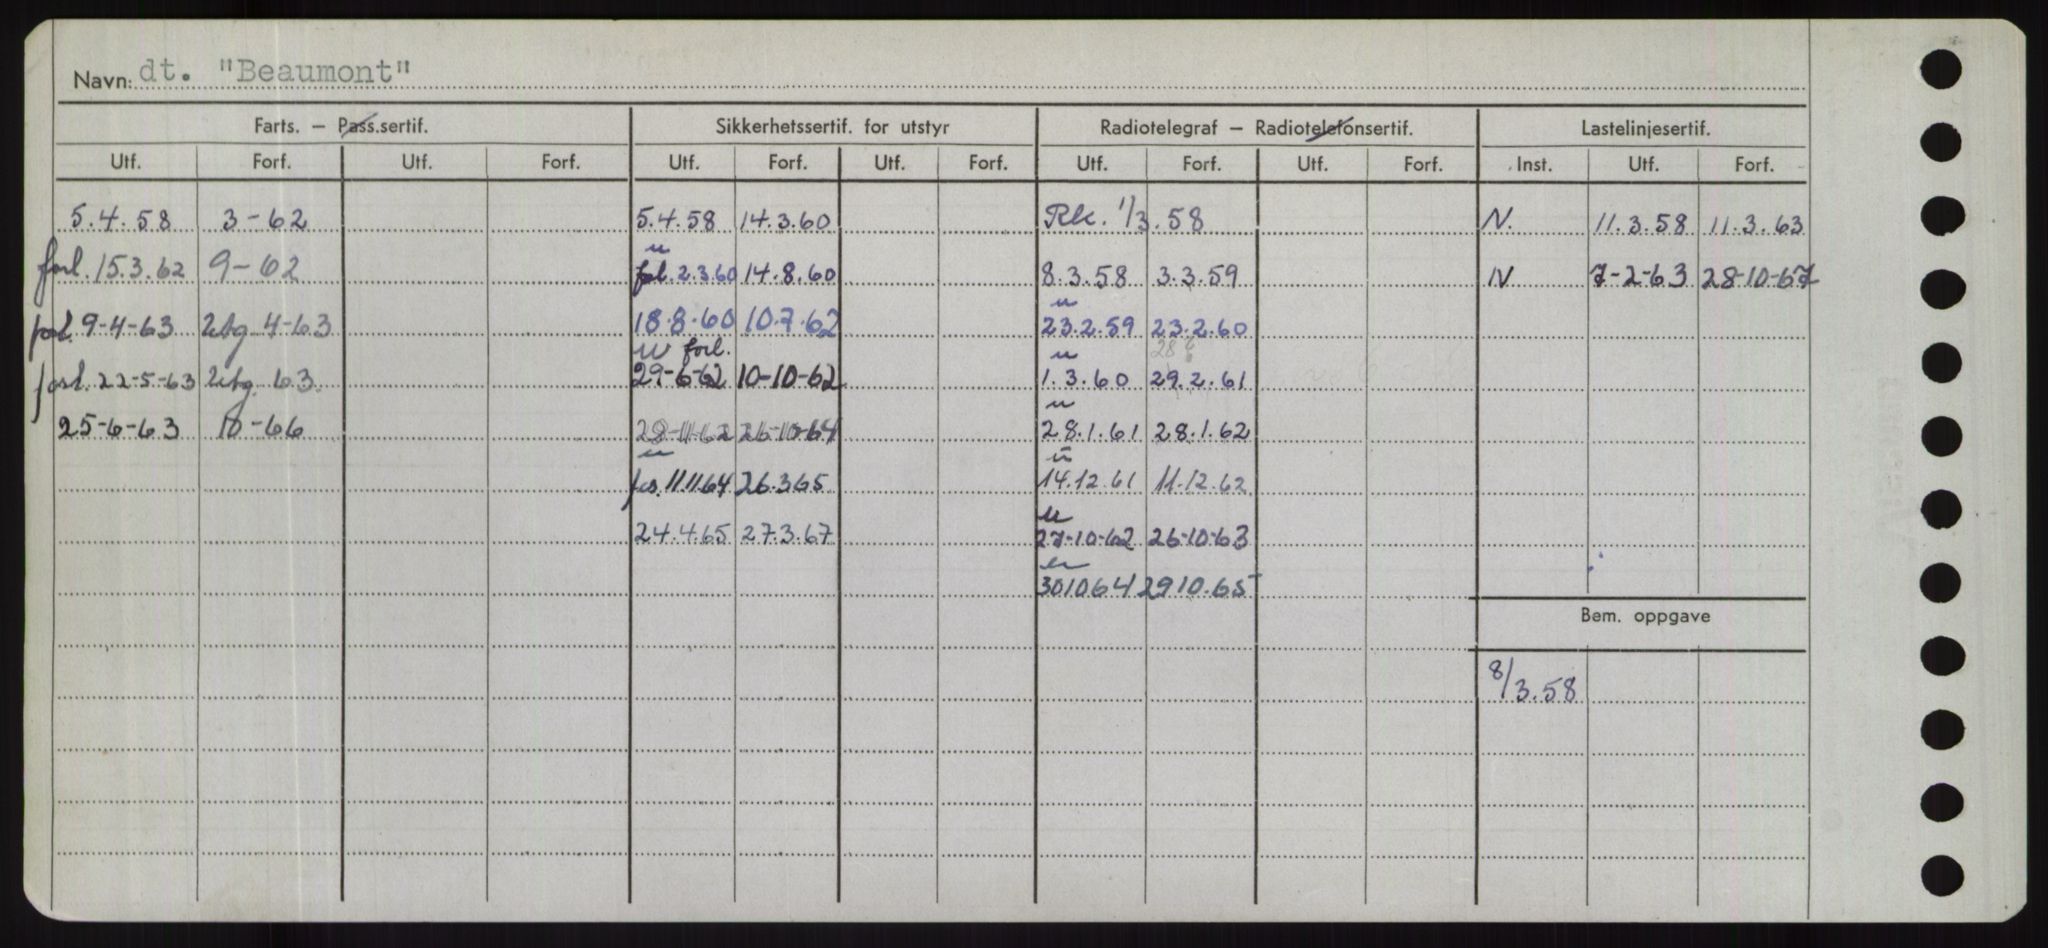 Navn: dt. "Beaumont"
Farts. – Pass.sertif. Sikkerhetssertif. for utstyr Radiotelegraf – Radiotelefonsertif. Lastelinjesertif.
Utf. Forf. Utf. Forf. Utf. Forf. Utf. Forf. Utf. Forf. Utf. Forf. Inst. Utf. Forf.
5.4.58 3-62 5.4.58 14.3.60 Rk. 1/3.58 N. 11.3.58 11.3.63
u
forl. 15.3.62 9-62 fol. 2.3.60 14.8.60 8.3.58 3.3.59 N 7-2-63 28-10-67
u
9-4-63 Utg 4-63 18.8.60 10.7.62 23.2.59 23.2.60
u forl. u
forl. 22-5-63 Utg. 63. 29-6-62 10-10-62 1.3.60 29.2.61
u
25-6-63 10-66 28-11-62 26-10-64 28.1.61 28.1.62
u u
11.11.64 26.3.65 14.12.61 11.12.62
u
24.4.65 27.3.67 27-10-62 26-10-63
u
301064 2910.65
Bem. oppgave
8/3.58